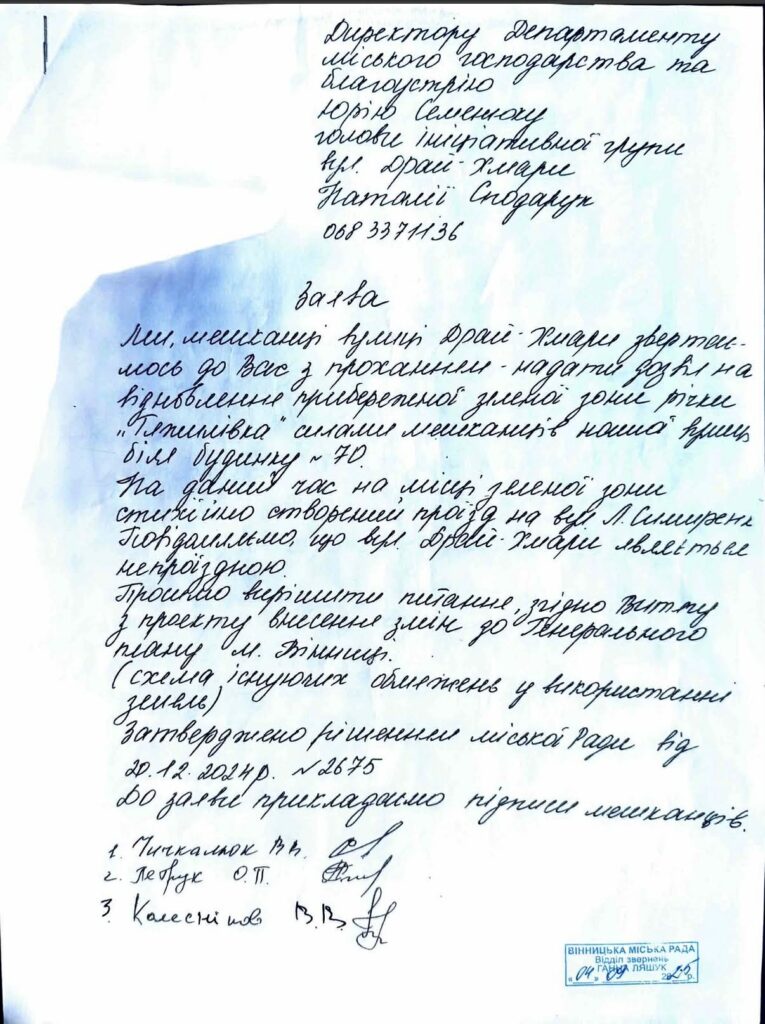 Директору Департаменту
міського господарства та
благоустрію
Юрію Семенюку
голови ініціативної групи
вул. Драй-Хмари
Наталії Сподарук
068 3371136
Заява
Ми, мешканці вулиці Драй-Хмари зверта-
мось до Вас з проханням - надати дозвіл на
відновлення прибережної зеленої зони річки
„Тяжилівка" силами мешканців нашої вулиці
біля будинку № 70.
На даний час на місці зеленої зони
стихійно створений проїзд на вул. Л. Симиренк
Повідомляємо, що вул. Драй-Хмари являється
непроїздною.
Просимо вирішити питання, згідно Витягу
з проекту внесення змін до Генерального
плану м. Вінниці.
(схема існуючих обмежень у використанні
земель)
Затверджено рішенням міської Ради від
20.12.2024р. №2675
До заяви прикладаємо підписи мешканців.
1. Чичкалюк В.В.
2. Петрук О.П.
3. Колесніков В.В.
ВІННИЦЬКА МІСЬКА РАДА
Відділ звернень
ГАННА ЛЯШУК
"04" 09 2025 р.